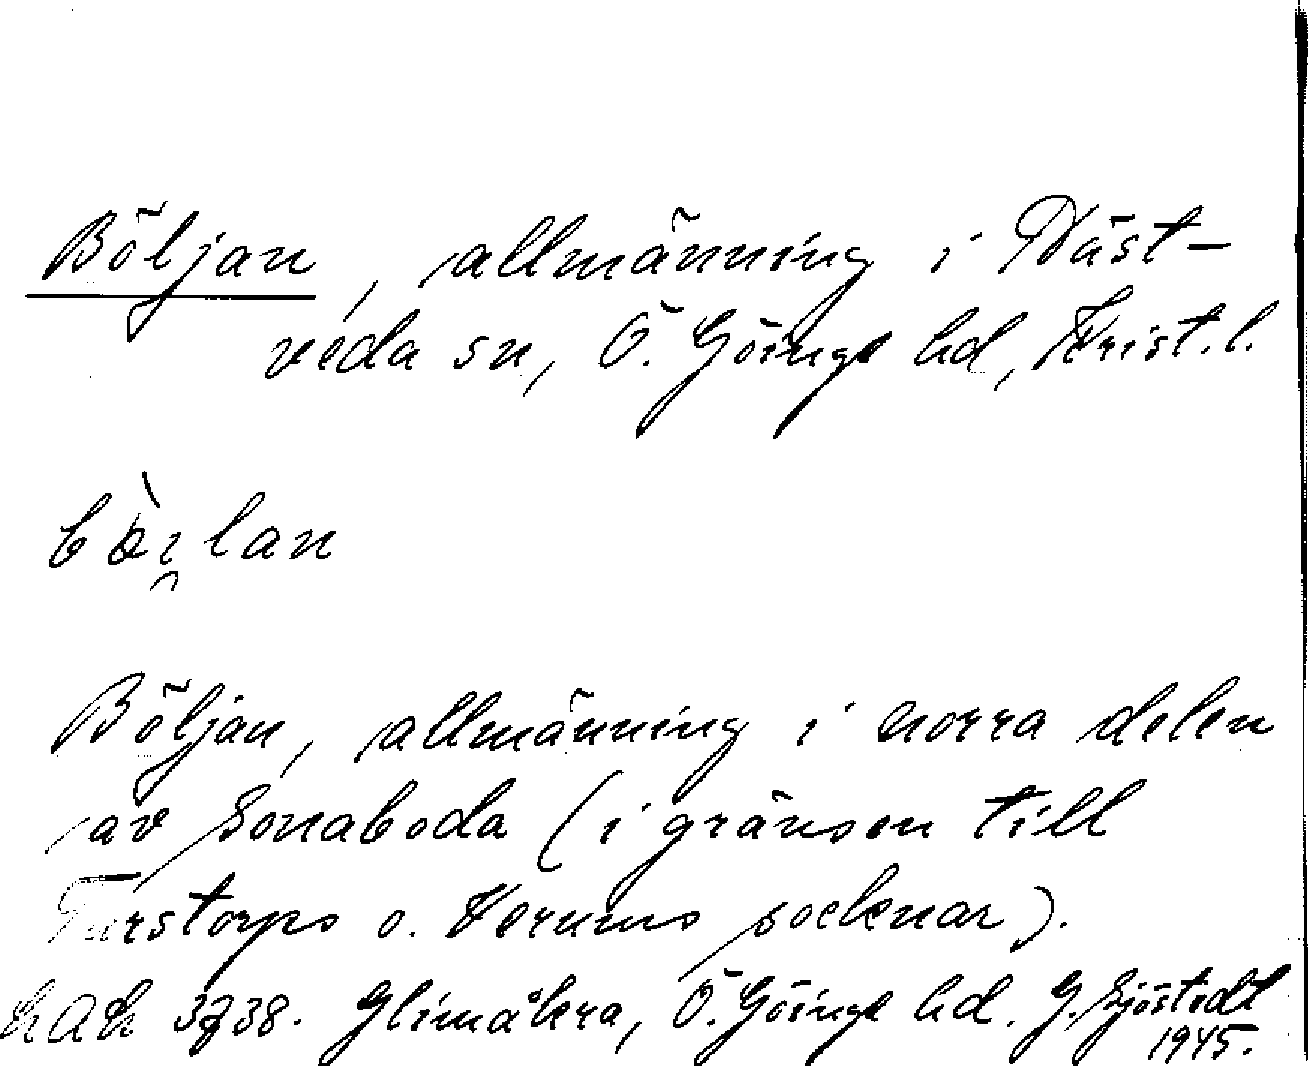 Böljan, allmänning i Häst-
veda sn, Ö. Göinge hd, Krist. l.
Böljan, allmänning i norra delen
av Lönaboda (i gränsen till
Farstorps o. Verums socknar).
LAL 3738. Glimåkra, Ö. Göinge hd. G. Sjöstedt
1945.